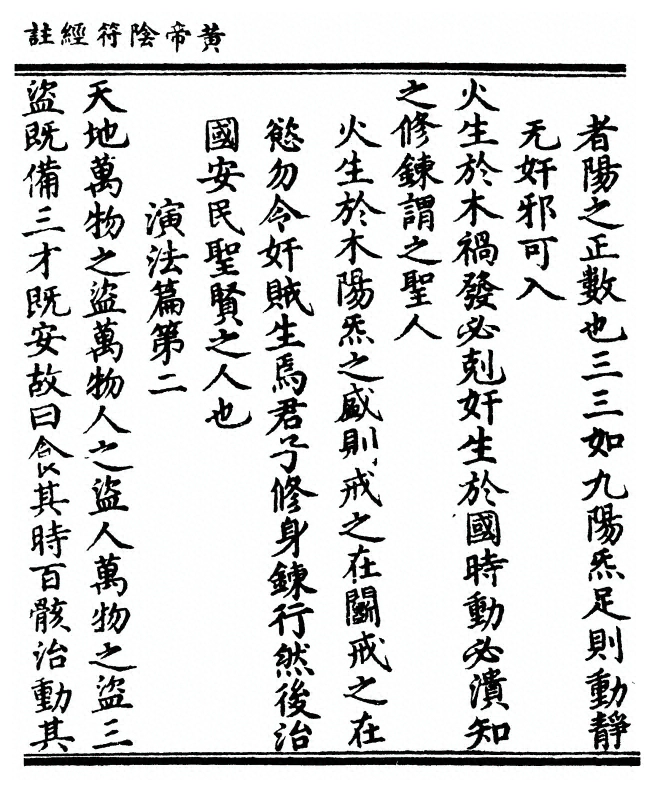 黃帝陰符經註
者陽之正數也三三如九陽炁足則動靜
无奸邪可入
火生於木禍發必剋奸生於國時動必潰知
之修鍊謂之聖人
火生於木陽炁之盛則戒之在鬭戒之在
慾勿令奸賊生焉君子修身鍊行然後治
國安民聖賢之人也
演法篇第二
天地萬物之盜萬物人之盜人萬物之盜三
盜既備三才既安故曰食其時百骸治動其